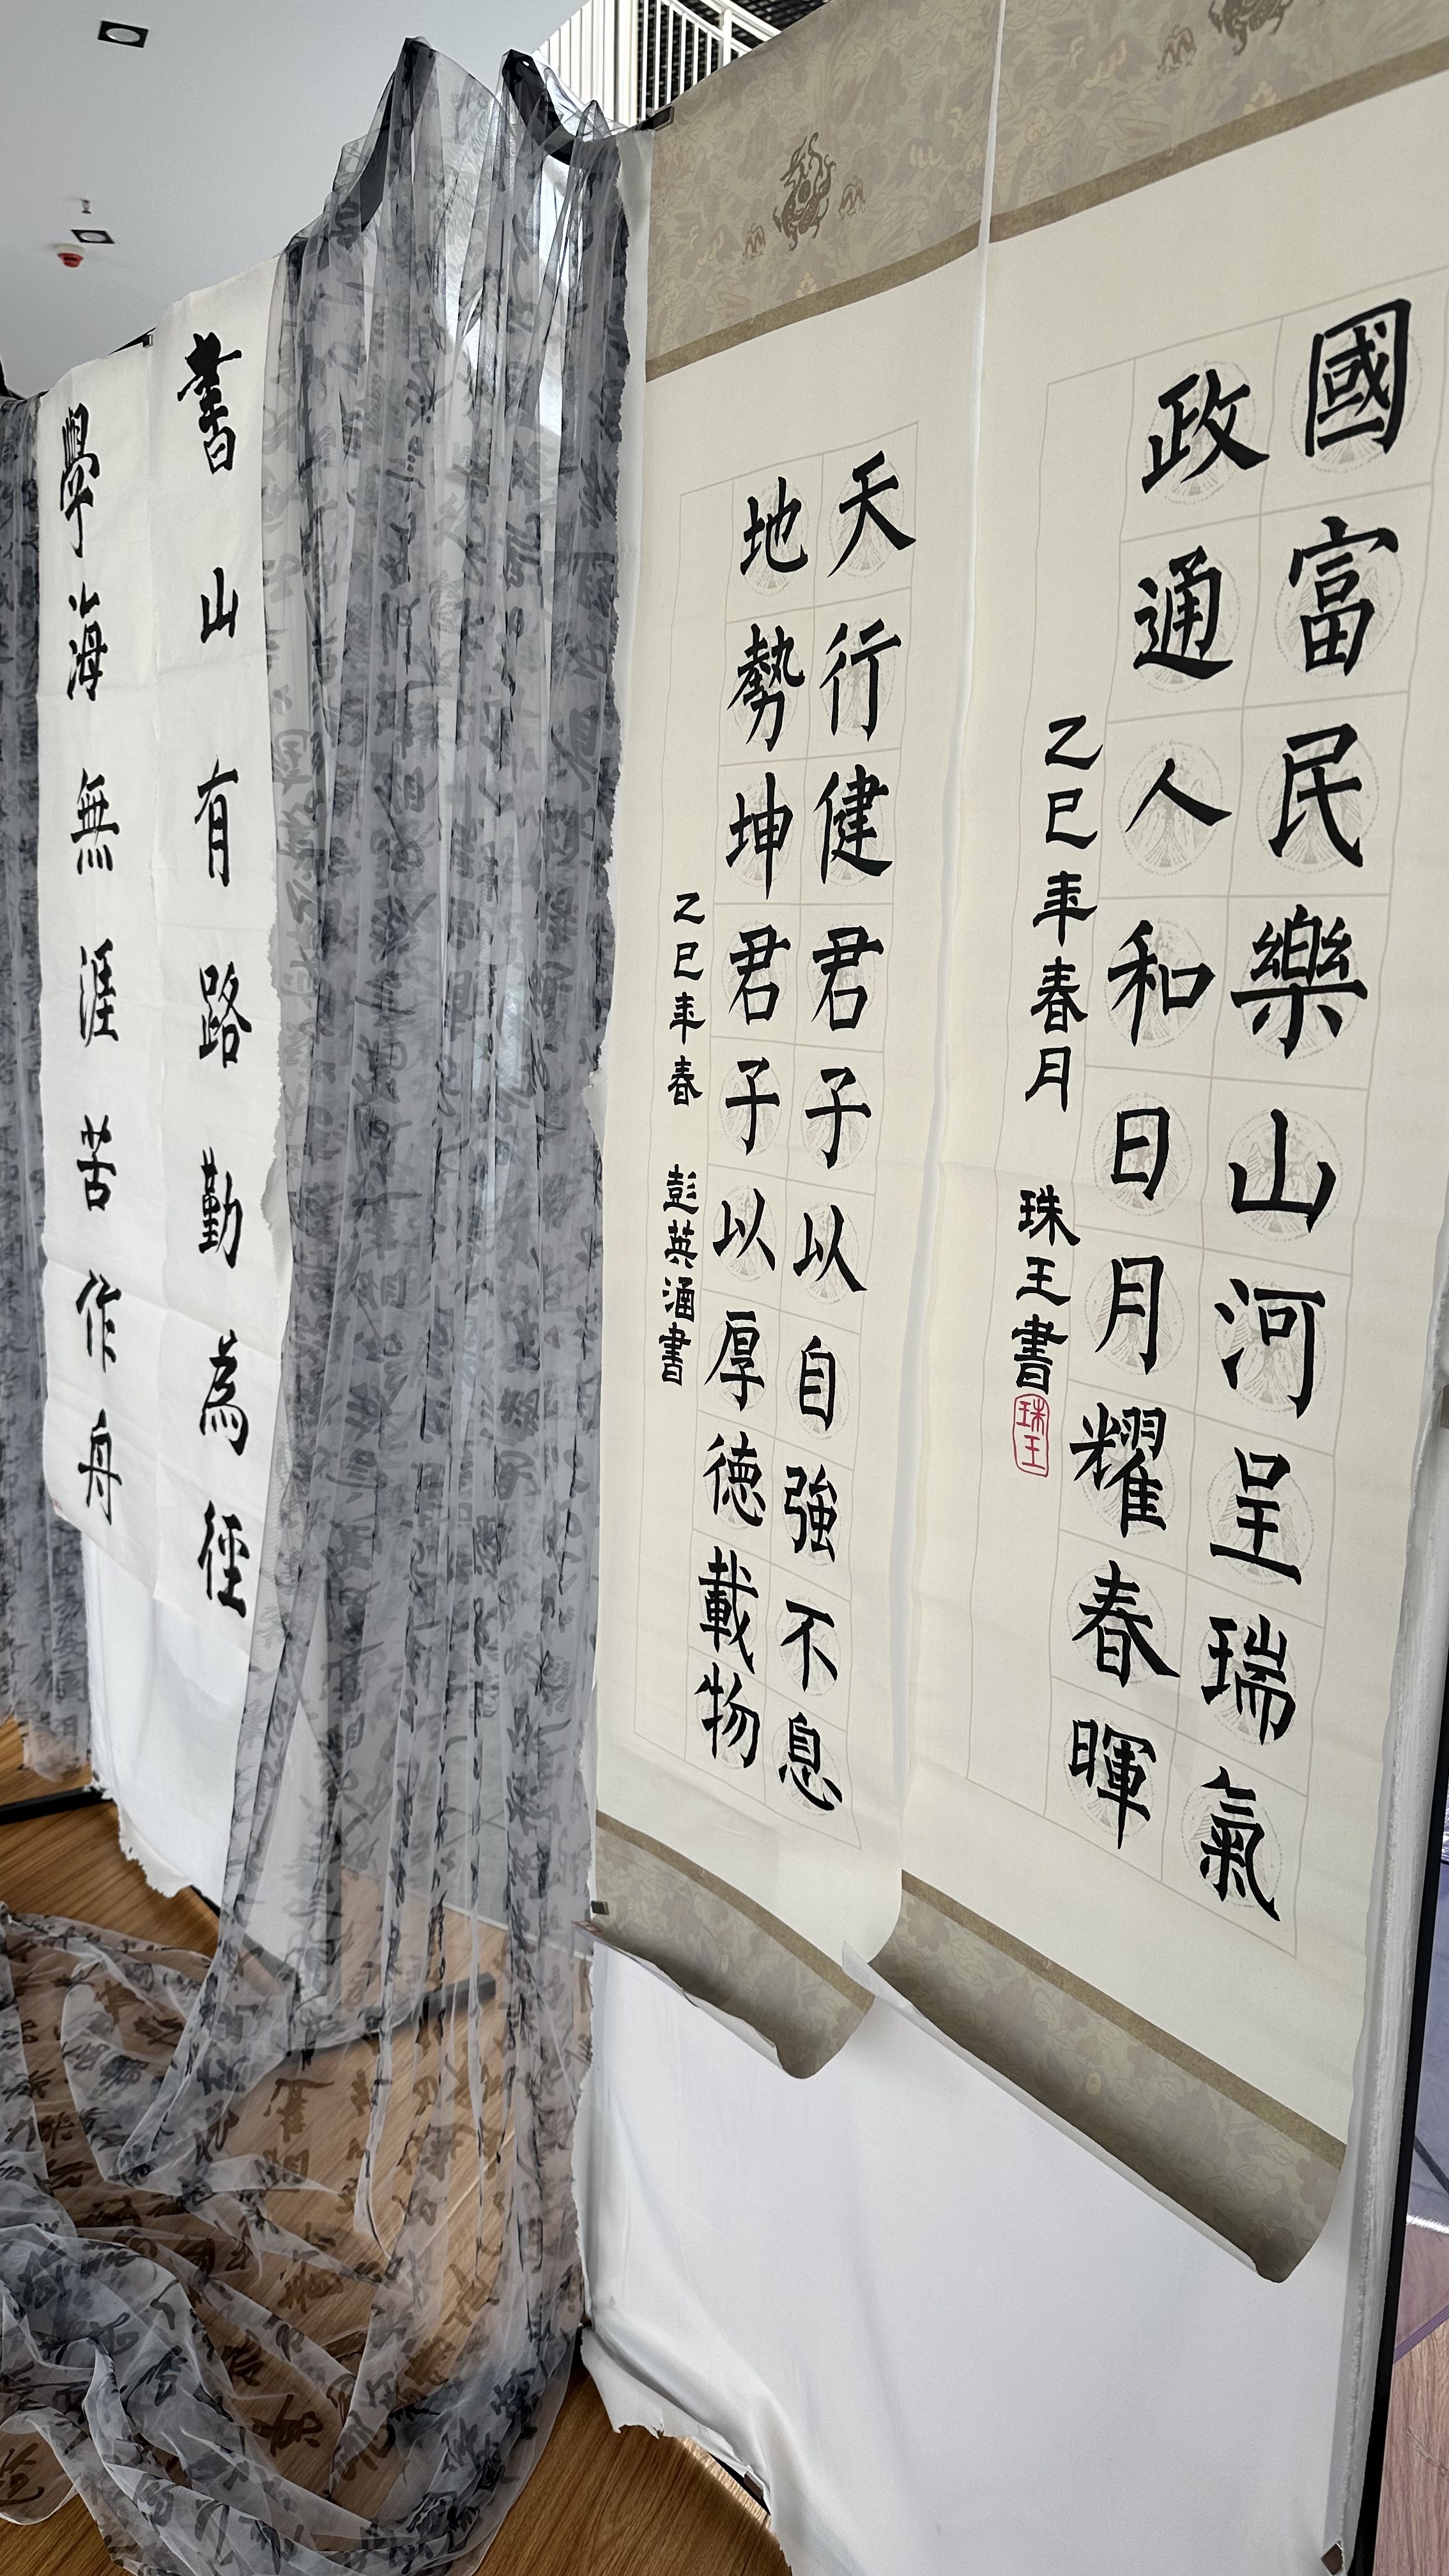 國富民樂山河呈瑞氣
政通人和日月耀春暉
乙巳年春月 珠王書
珠王
天行健君子以自強不息
地勢坤君子以厚德載物
乙巳年春 彭英涵書
書山有路勤為徑
學海無涯苦作舟